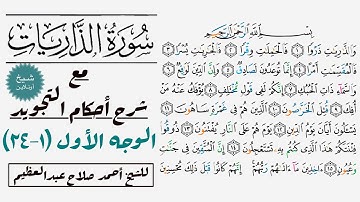 سُورَةُ الذَّارِيَات
مع
شرح أحكام التجويد
الوجه الأول (١-٢٤)
للشيخ أحمد صلاح عبد العظيم
شيخ
أونلاين
بِسْمِ اللَّهِ الرَّحْمَٰنِ الرَّحِيمِ
وَالذَّارِيَاتِ ذَرْوًا ١ فَالْحَامِلَاتِ وِقْرًا ٢ فَالْجَارِيَاتِ يُسْرًا ٣
فَالْمُقَسِّمَاتِ أَمْرًا ٤ إِنَّمَا تُوعَدُونَ لَصَادِقٌ ٥ وَإِنَّ الدِّينَ لَوَاقِعٌ ٦
وَالسَّمَاءِ ذَاتِ الْحُبُكِ ٧ إِنَّكُمْ لَفِي قَوْلٍ مُّخْتَلِفٍ ٨ يُؤْفَكُ عَنْهُ مَنْ
أُفِكَ ٩ قُتِلَ الْخَرَّاصُونَ ١٠ الَّذِينَ هُمْ فِي غَمْرَةٍ سَاهُونَ ١١
يَسْأَلُونَ أَيَّانَ يَوْمُ الدِّينِ ١٢ يَوْمَ هُمْ عَلَى النَّارِ يُفْتَنُونَ ١٣ ذُوقُوا
فِتْنَتَكُمْ هَٰذَا الَّذِي كُنتُم بِهِ تَسْتَعْجِلُونَ ١٤ إِنَّ الْمُتَّقِينَ فِي جَنَّاتٍ
وَعُيُونٍ ١٥ آخِذِينَ مَا آتَاهُمْ رَبُّهُمْ إِنَّهُمْ كَانُوا قَبْلَ ذَٰلِكَ مُحْسِنِينَ